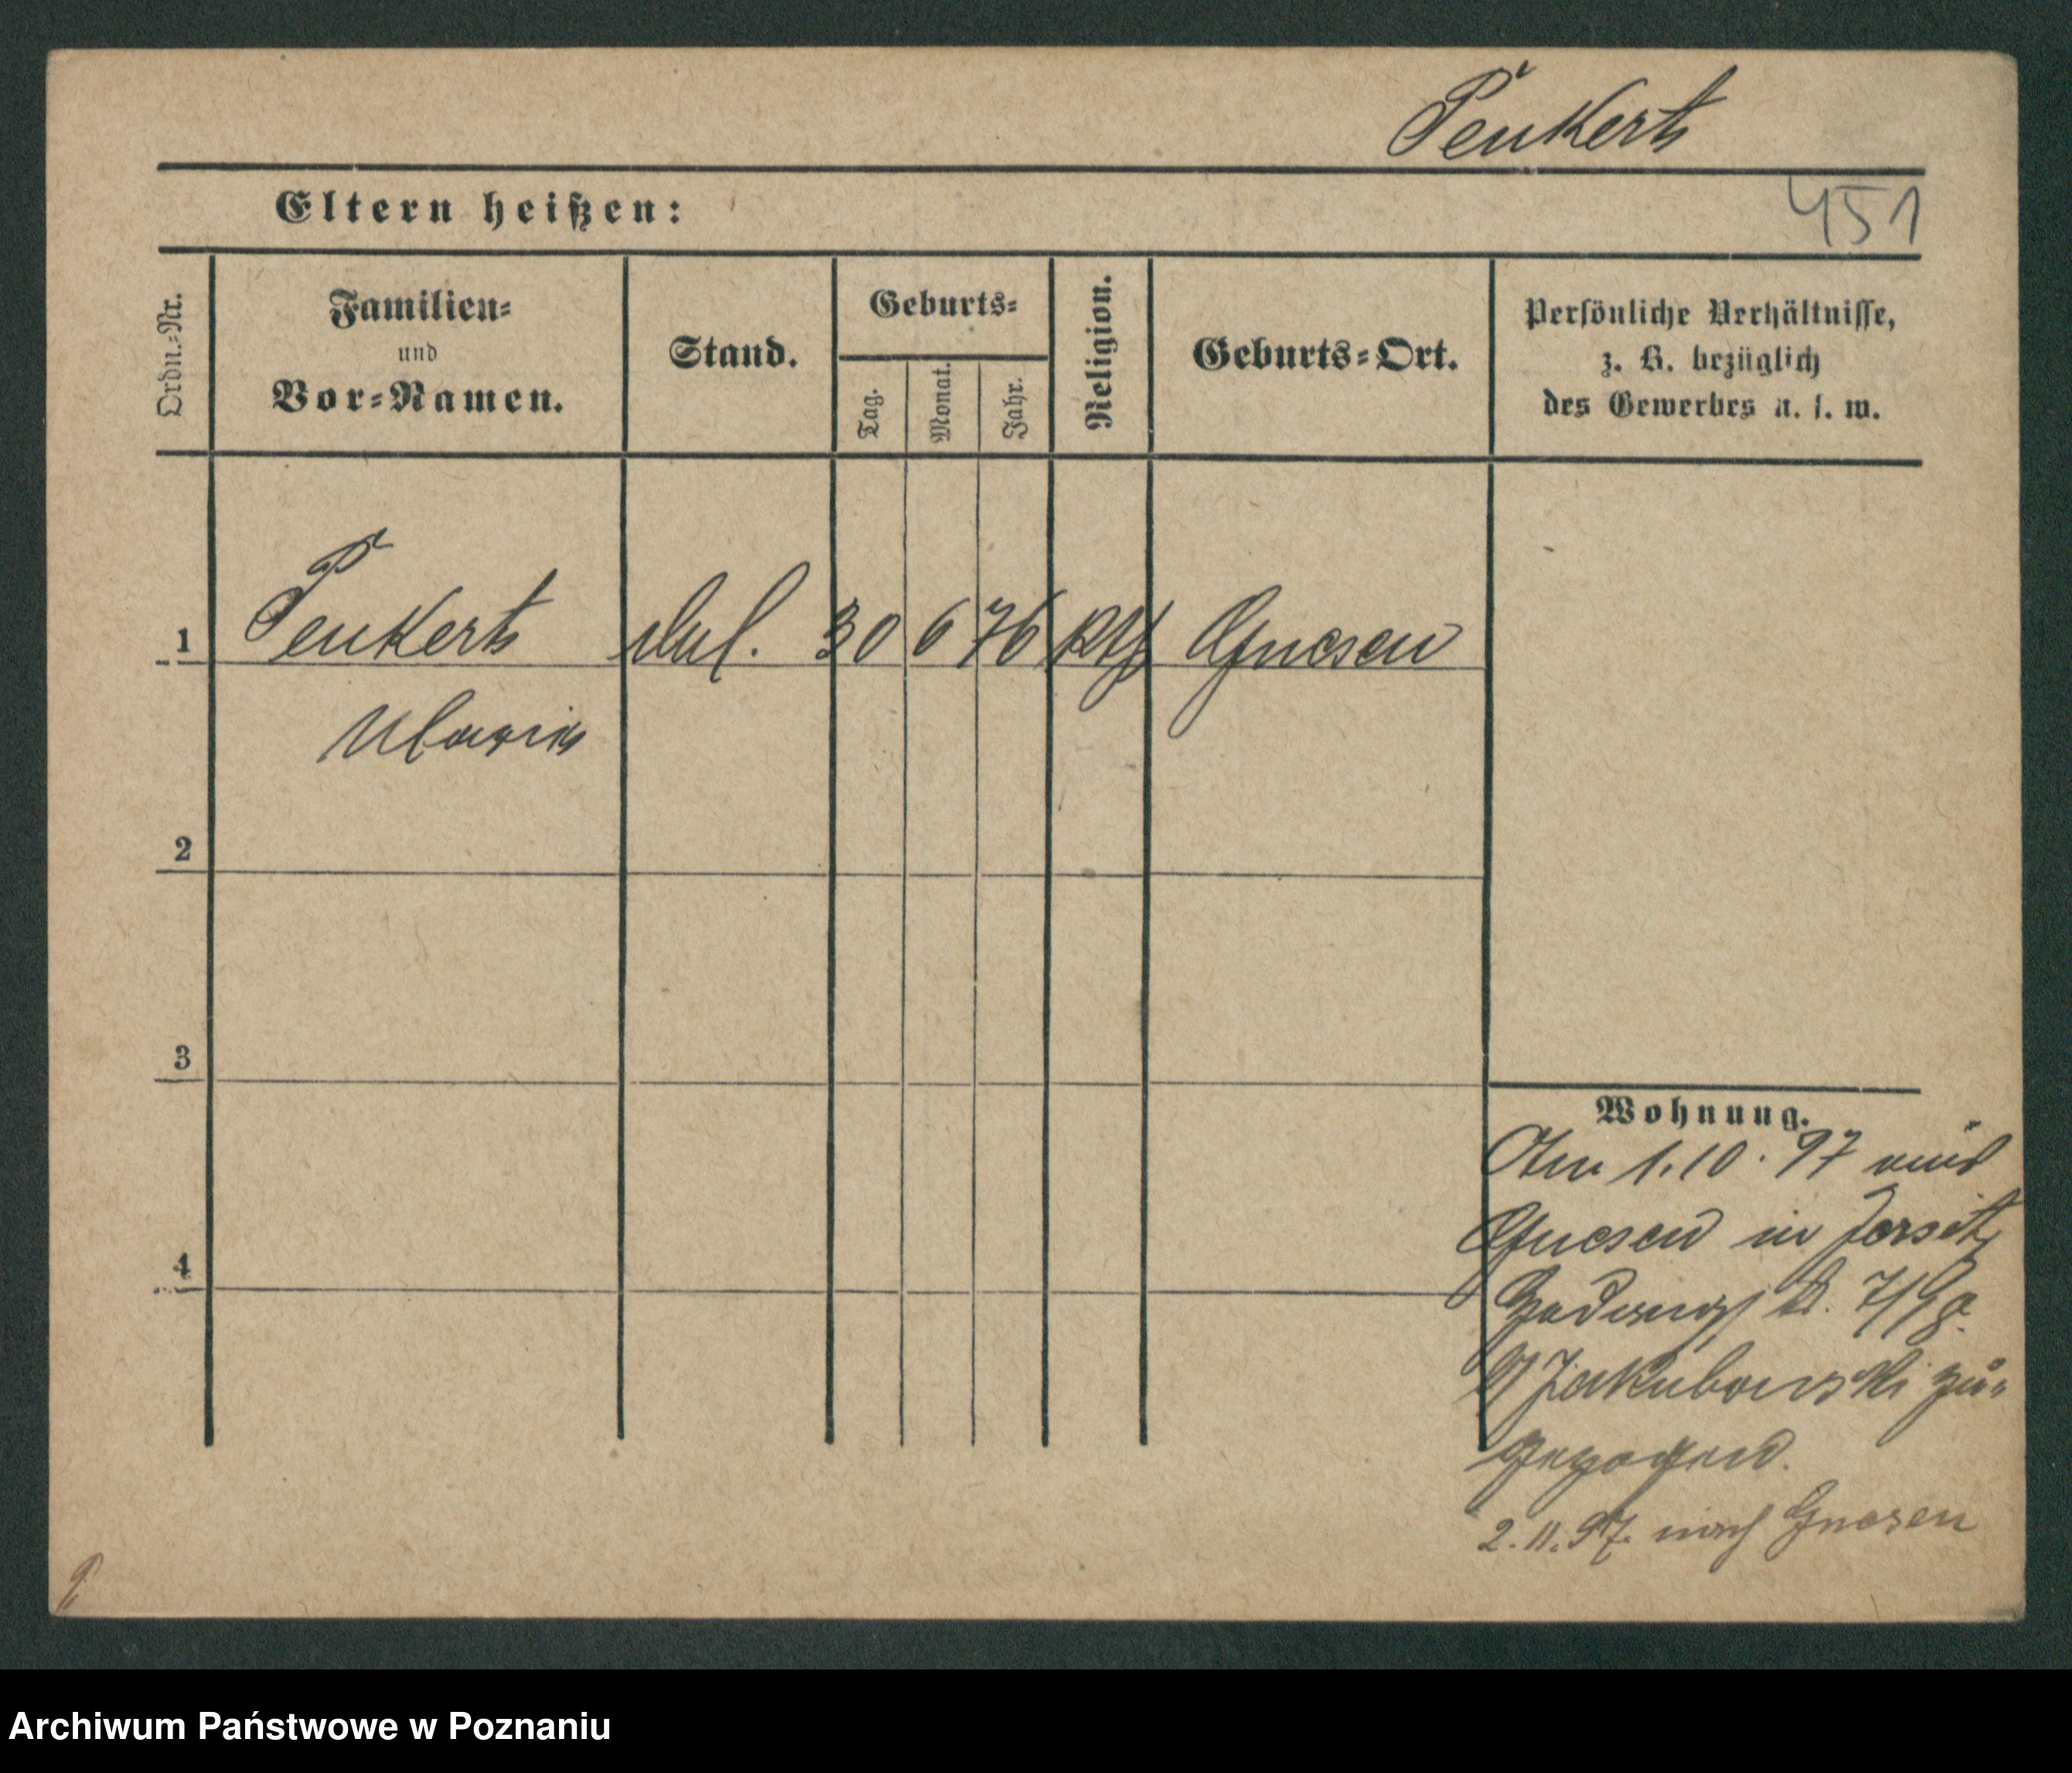 Penkert
451
Eltern heißen:
Ordn.-Nr.
Familien-
und
Vor-Namen.
Stand.
Geburts-
Tag.
Monat.
Jahr.
Religion.
Geburts-Ort.
Persönliche Verhältnisse,
z. B. bezüglich
des Gewerbes u. s. w.
1 Penkert 30 6 76 kth Gnesen
Maria
2
3
4
Wohnung.
Am 1.10.97 aus
Gnesen in Jersitz
7/8
Jakubowski zu-
gezogen.
2.11.97. nach Gnesen
Archiwum Państwowe w Poznaniu